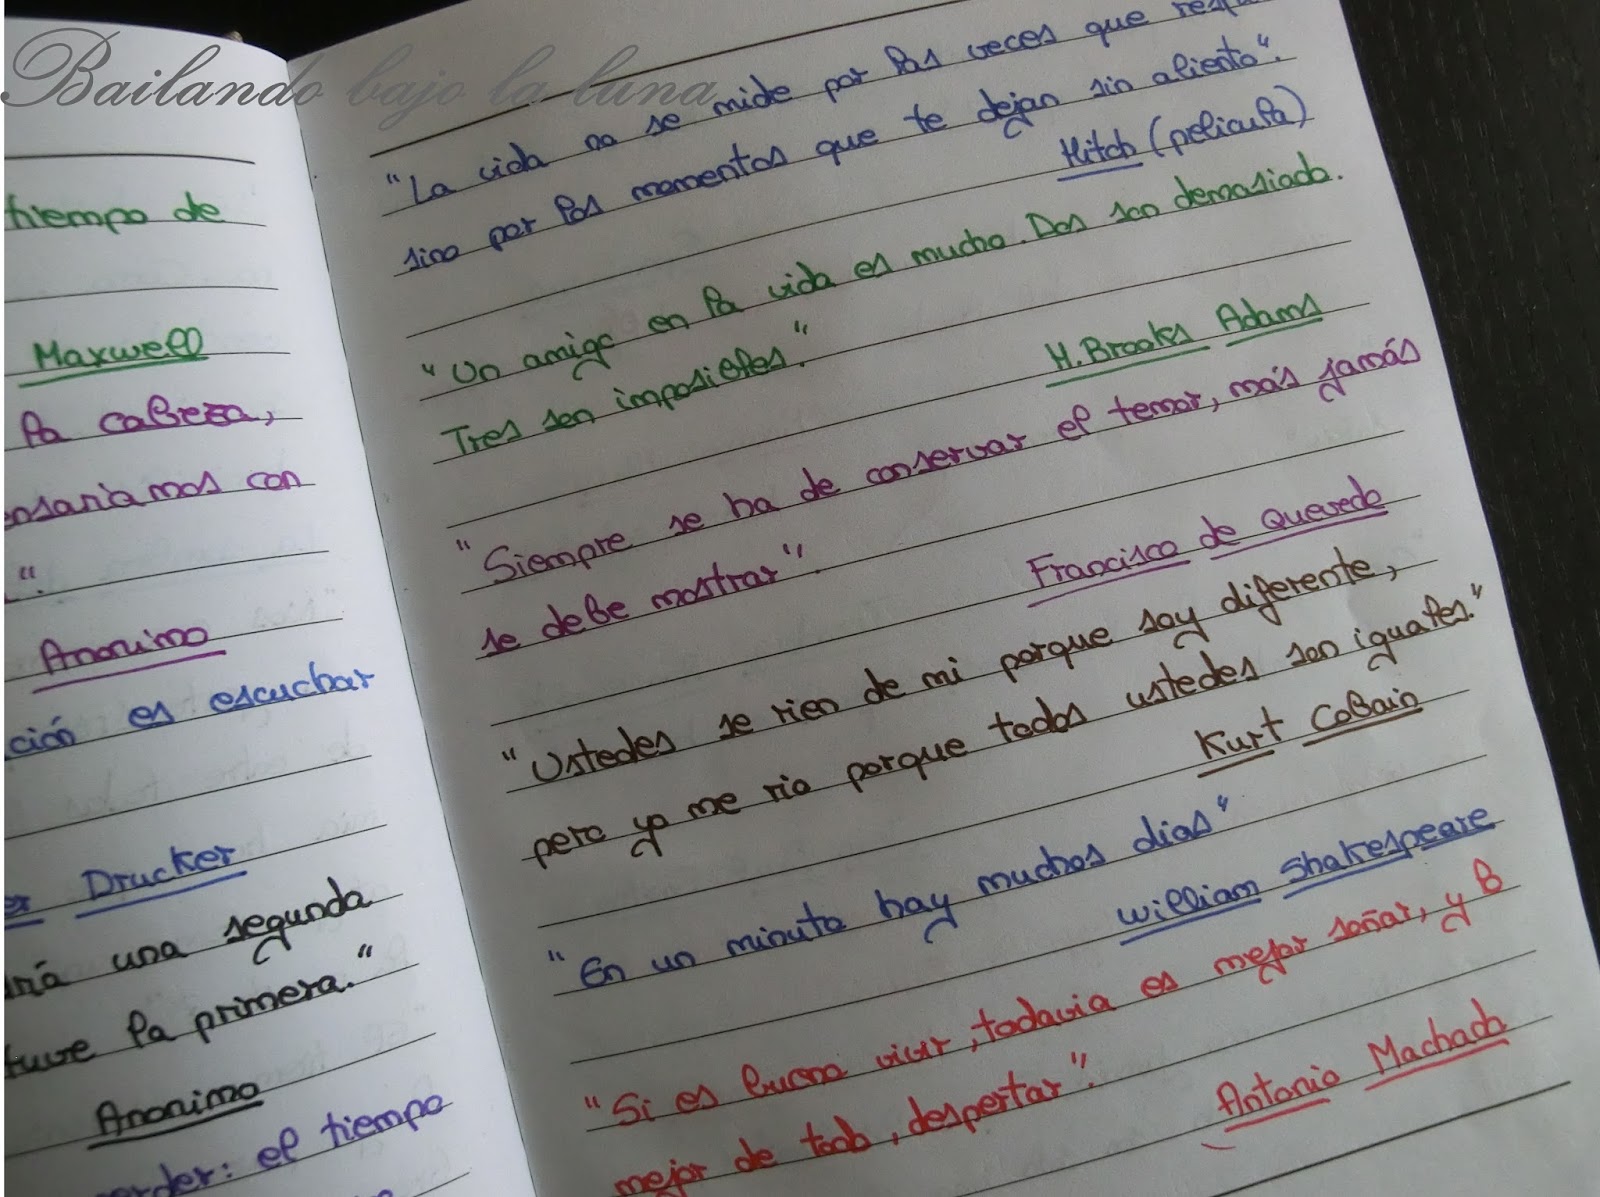 Bailando bajo la luna
tiempo de
Maxwell
la cabeza,
ensaríamos con
".
Anonimo
ción es escuchar
er Drucker
una segunda
tuve la primera."
Anonimo
erder: el tiempo
"La vida no se mide por las veces que
sino por los momentos que te dejan sin aliento".
Hitch (pelicula)
"Un amigo en la vida es mucho. Dos son demasiado.
Tres son imposibles."
H. Brooks Adams
"Siempre se ha de conservar el temor, más jamás
se debe mostrar".
Francisco de Quevedo
"Ustedes se rien de mi porque soy diferente,
pero yo me rio porque todos ustedes son iguales."
Kurt Cobain
"En un minuto hay muchos dias"
William Shakespeare
"Si es bueno vivir, todavia es mejor soñar, y lo
mejor de todo, despertar".
Antonio Machado